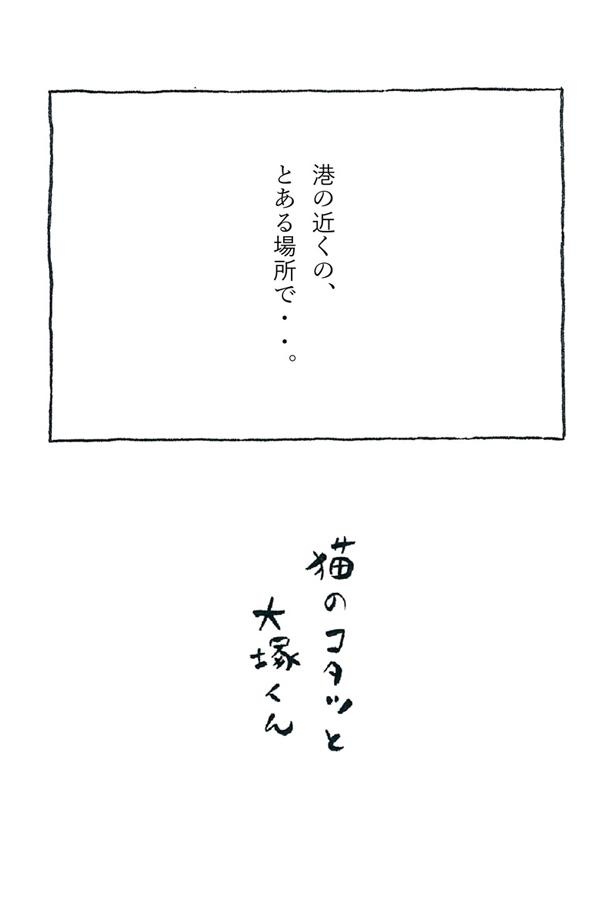 港の近くの、
とある場所で・・。
猫のコタツと
大塚くん